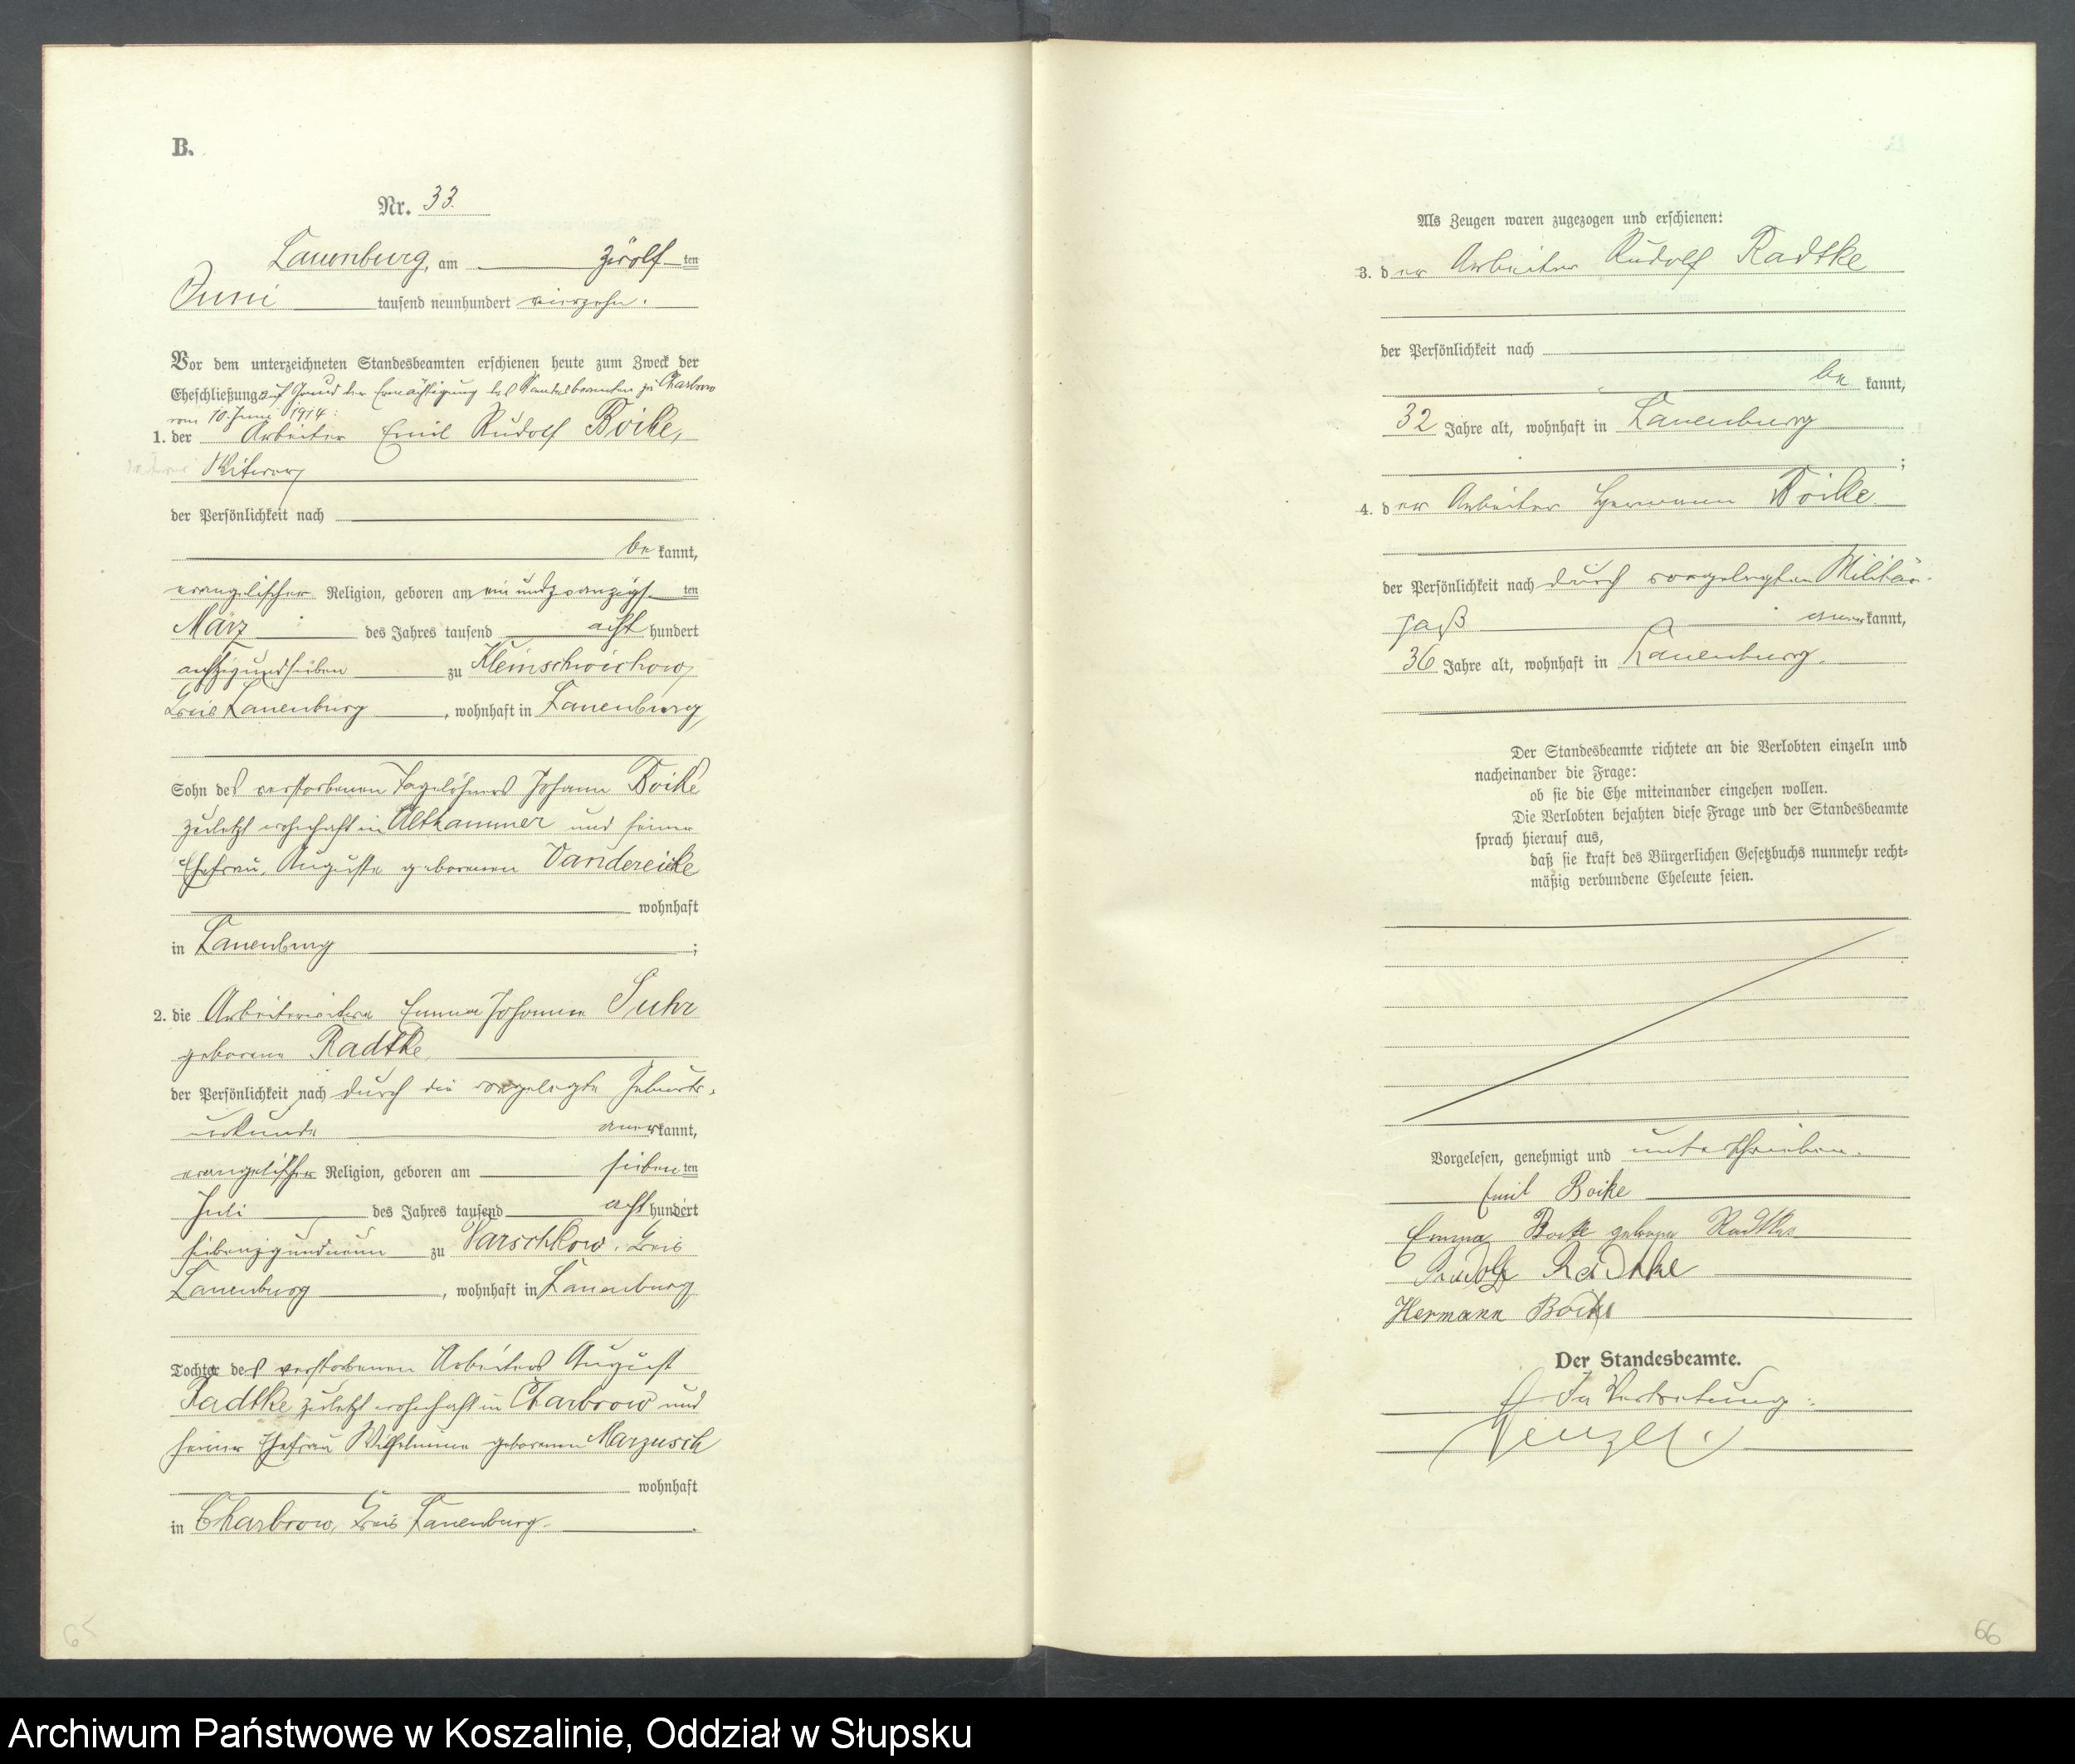 B.
Nr. 33.
Lauenburg, am zwölf ten
Juni tausend neunhundert vierzehn.
Vor dem unterzeichneten Standesbeamten erschienen heute zum Zweck der
Eheschließung auf Grund der Ermächtigung des Standesbeamten zu Charbrow
vom 10. Juni 1914:
1. der Arbeiter Emil Rudolf Boike,
Witwer
der Persönlichkeit nach
be kannt,
evangelischer Religion, geboren am ein und zwanzigs ten
März des Jahres tausend acht hundert
achtzig und sieben zu Kleinschwichow,
Kreis Lauenburg, wohnhaft in Lauenburg,
Sohn des verstorbenen Tagelöhners Johann Boike
zuletzt wohnhaft in Althammer und seiner
Ehefrau, Auguste geborenen Vandereike
wohnhaft
in Lauenburg ;
2. die Arbeiterwitwe Emma Johanne Suhr
geborene Radtke
der Persönlichkeit nach durch die vorgelegte Geburts-
urkunde aner kannt,
evangelischer Religion, geboren am sieben ten
Juli des Jahres tausend acht hundert
siebenzig und neun zu Varschkow, Kreis
Lauenburg, wohnhaft in Lauenburg
Tochter des verstorbenen Arbeiters August
Radtke zuletzt wohnhaft in Charbrow und
seiner Ehefrau Wilhelmine geborenen Marzusch
wohnhaft
in Charbrow, Kreis Lauenburg.
65
Als Zeugen waren zugezogen und erschienen:
3. der Arbeiter Rudolf Radtke
der Persönlichkeit nach
be kannt,
32 Jahre alt, wohnhaft in Lauenburg
;
4. der Arbeiter Hermann Boike
der Persönlichkeit nach durch vorgelegten Militär-
paß aner kannt,
36 Jahre alt, wohnhaft in Lauenburg.
Der Standesbeamte richtete an die Verlobten einzeln und
nacheinander die Frage:
ob sie die Ehe miteinander eingehen wollen.
Die Verlobten bejahten diese Frage und der Standesbeamte
sprach hierauf aus,
daß sie kraft des Bürgerlichen Gesetzbuchs nunmehr recht-
mäßig verbundene Eheleute seien.
Vorgelesen, genehmigt und unterschrieben.
Emil Boike
Emma Boike geborene Radtke
Rudolf Radtke
Hermann Boike
Der Standesbeamte.
In Vertretung:
Wenzel.
66
Archiwum Państwowe w Koszalinie, Oddział w Słupsku